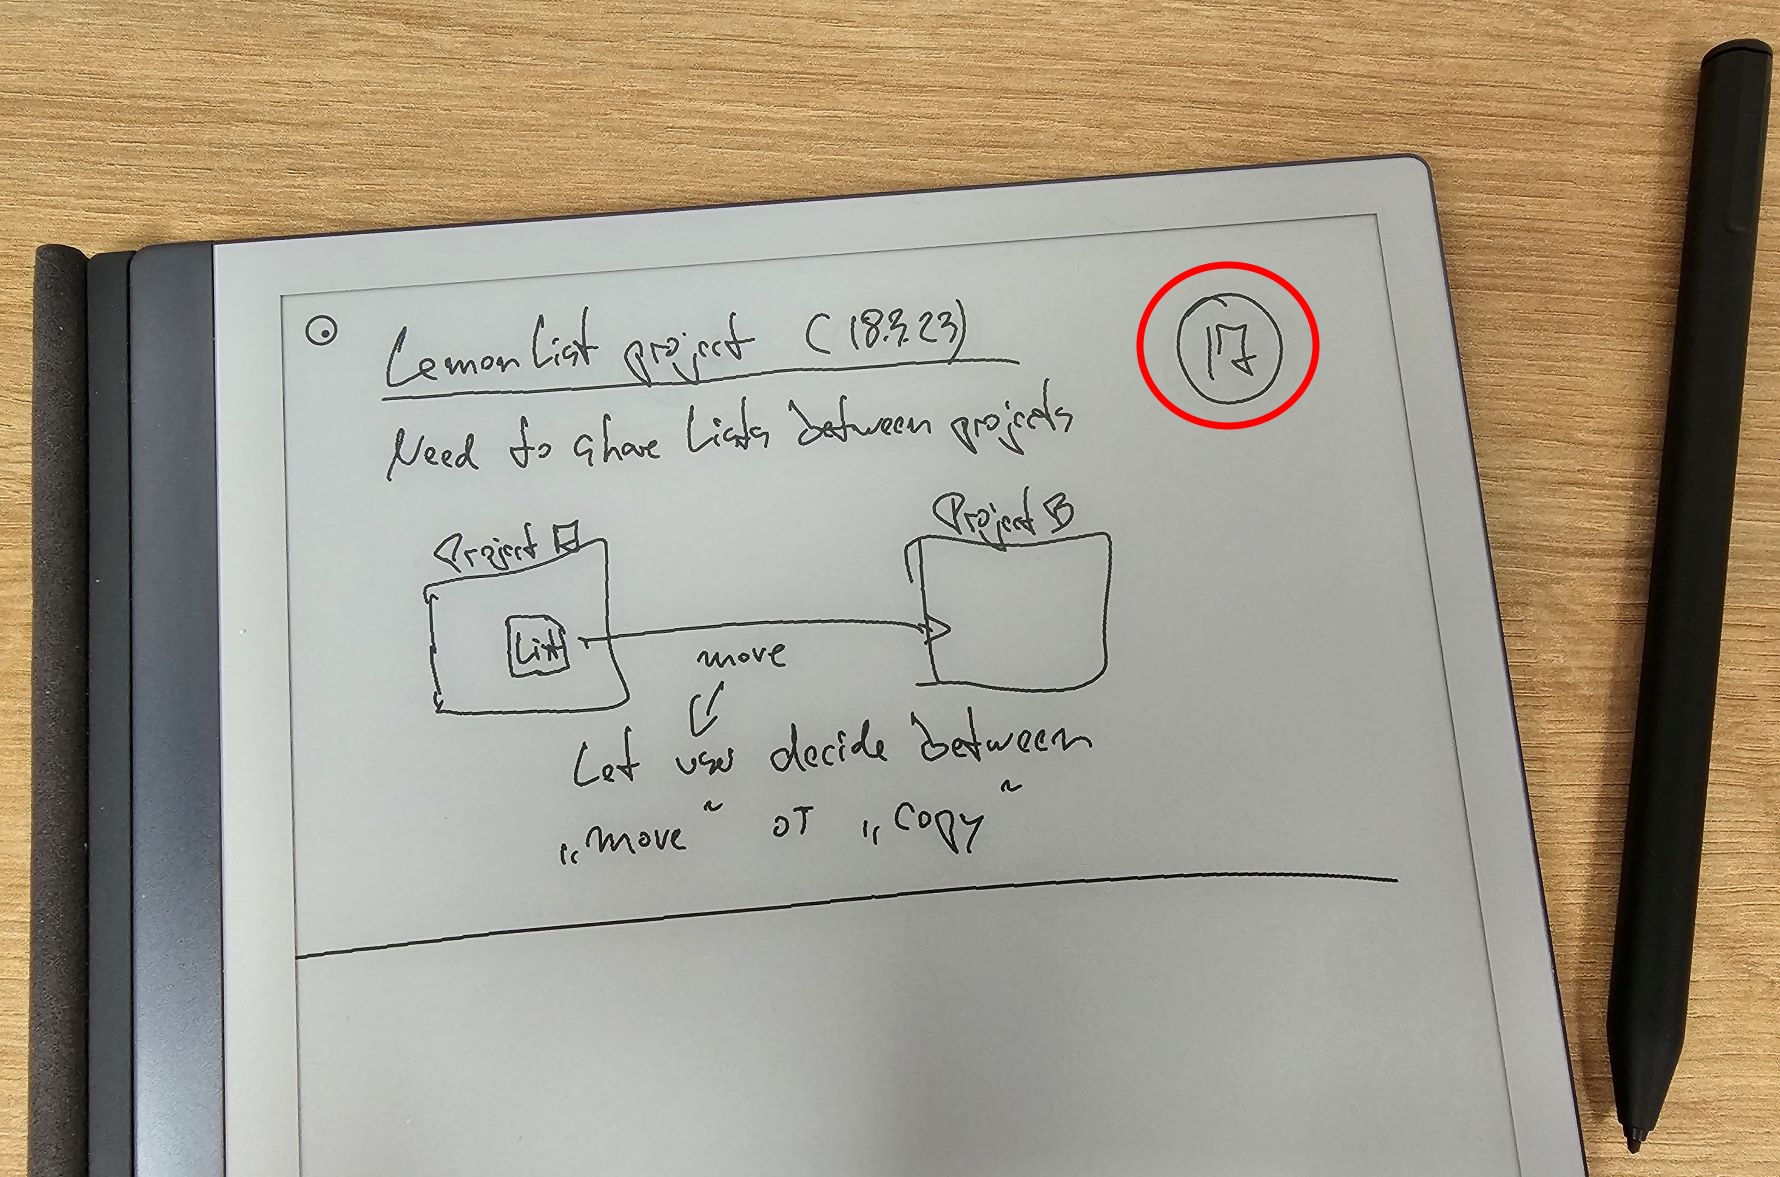 LemonList project (18.3.23)
Need to share Lists between projects
Project A
Project B
List
move
Let user decide between
„move" or „copy"